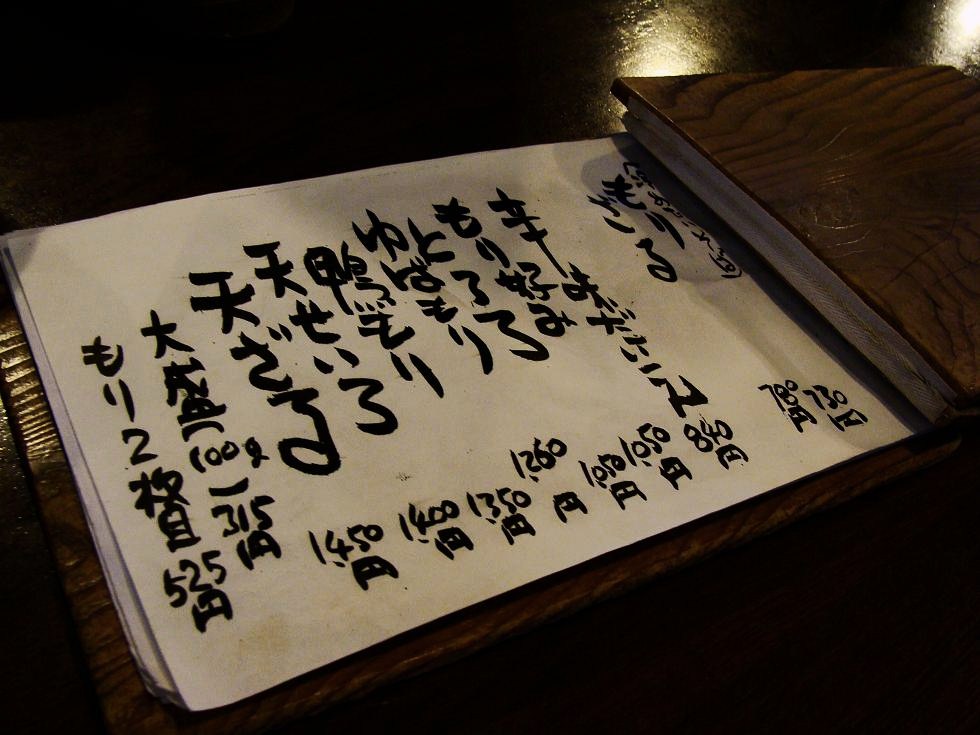 もり 730円
ざる 780円
辛味だいこん
もり好み 1050円
とろろ 1050円
ゆばもり 1260円
鴨もり 1350円
天せいろ 1400円
天ざる 1450円
大盛(100g) 315円
もり2枚目 525円